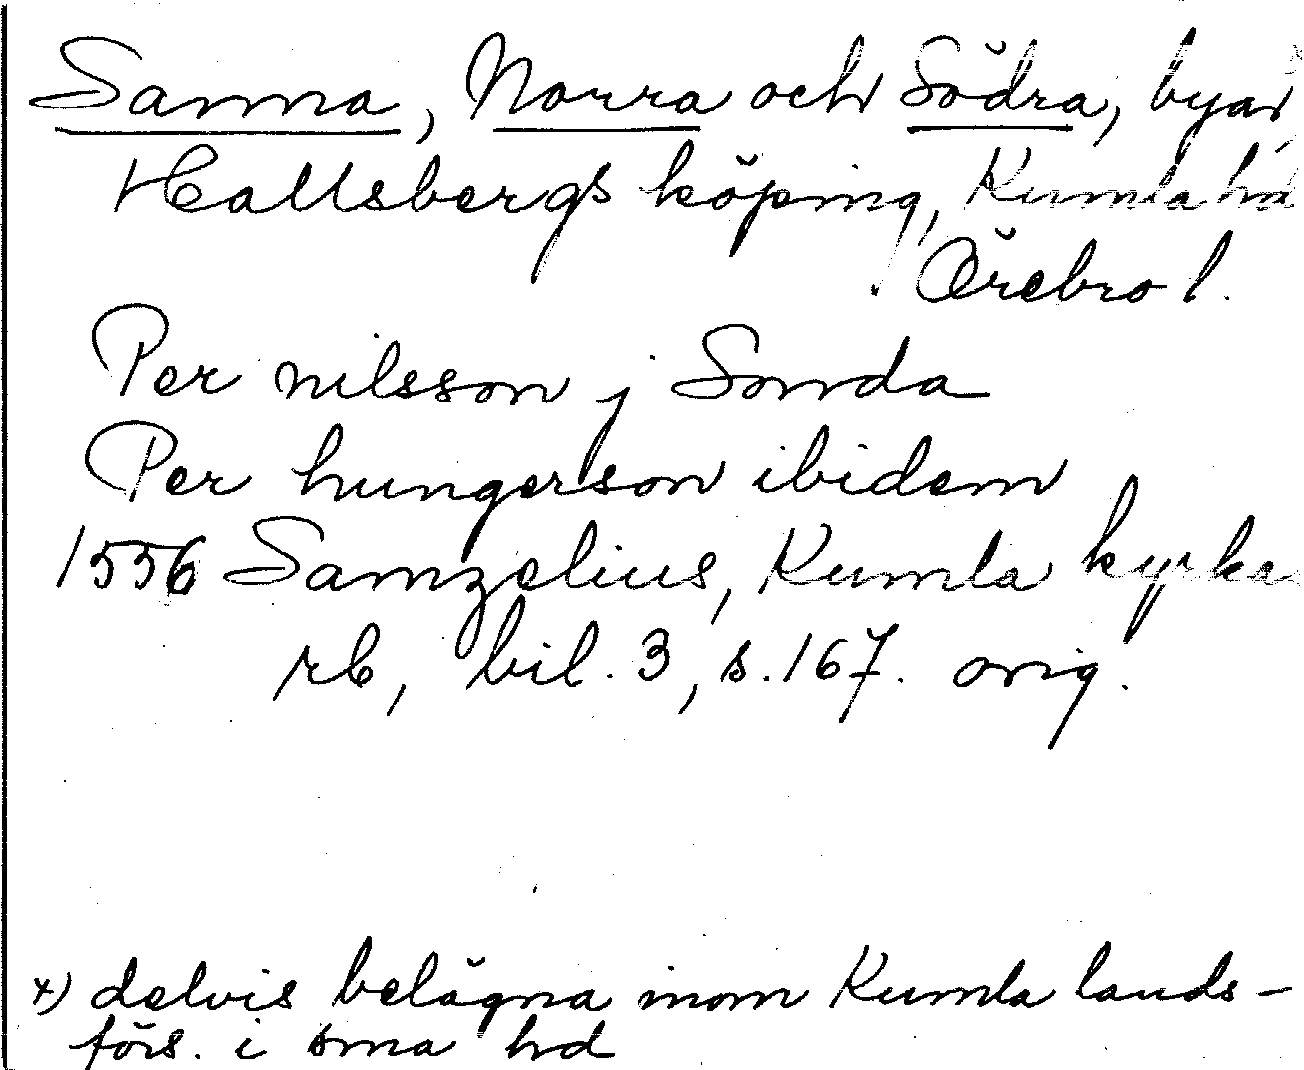 Sanna, Norra och Södra, byar
Hallsbergs köping, Kumla hd
Örebro l.
Per nilsson j Sonda
Per hungerson ibidem
1556 Samzelius, Kumla kyrkas
rb, bil. 3, s. 167. orig.
x) delvis belägna inom Kumla lands-
förs. i sma hd